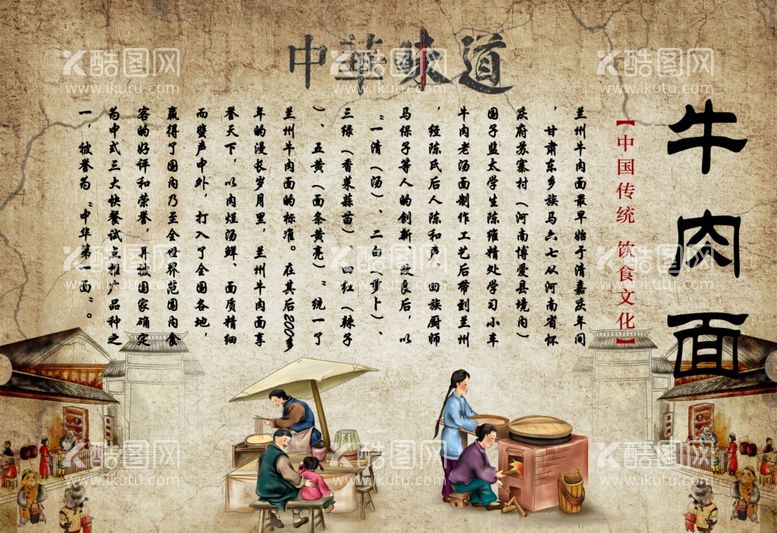 中華味道
牛肉面
【中国传统 饮食文化】
兰州牛肉面最早始于清嘉庆年间
，甘肃东乡族马六七从河南省怀
庆府苏寨村（河南博爱县境内）
国子监太学生陈维精处学习小车
牛肉老汤面制作工艺后带到兰州
，经陈氏后人陈和声、回族厨师
马保子等人的创新、改良后，以
“一清（汤）、二白（萝卜）、
三绿（香菜蒜苗）、四红（辣子
）、五黄（面条黄亮）”统一了
兰州牛肉面的标准。在其后200多
年的漫长岁月里，兰州牛肉面享
誉天下，以肉烂汤鲜、面质精细
而蜚声中外，打入了全国各地，
赢得了国内乃至全世界范围内食
客的好评和荣誉，并被国家确定
为中式三大快餐试点推广品种之
一，被誉为“中华第一面”。
酷图网
www.ikutu.com